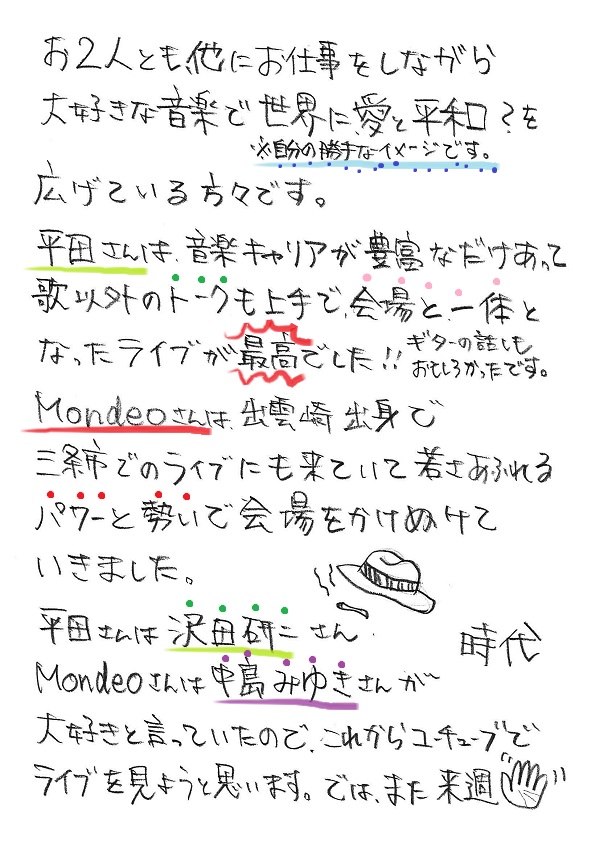 お2人とも、他にお仕事をしながら
大好きな音楽で世界に、愛と平和？を
※自分の勝手なイメージです。
広げている方々です。
平田さんは、音楽キャリアが豊富なだけあって
歌以外のトークも上手で、会場と、一体と
なったライブが最高でした!!
ギターの話しも
おもしろかったです。
Mondeoさんは、出雲崎出身で
三条市でのライブにも来ていて若さあふれる
パワーと勢いで会場をかけぬけて
いきました。
平田さんは沢田研二さん
時代
Mondeoさんは中島みゆきさんが
大好きと言っていたので、これからユーチューブで
ライブを見ようと思います。では、また来週